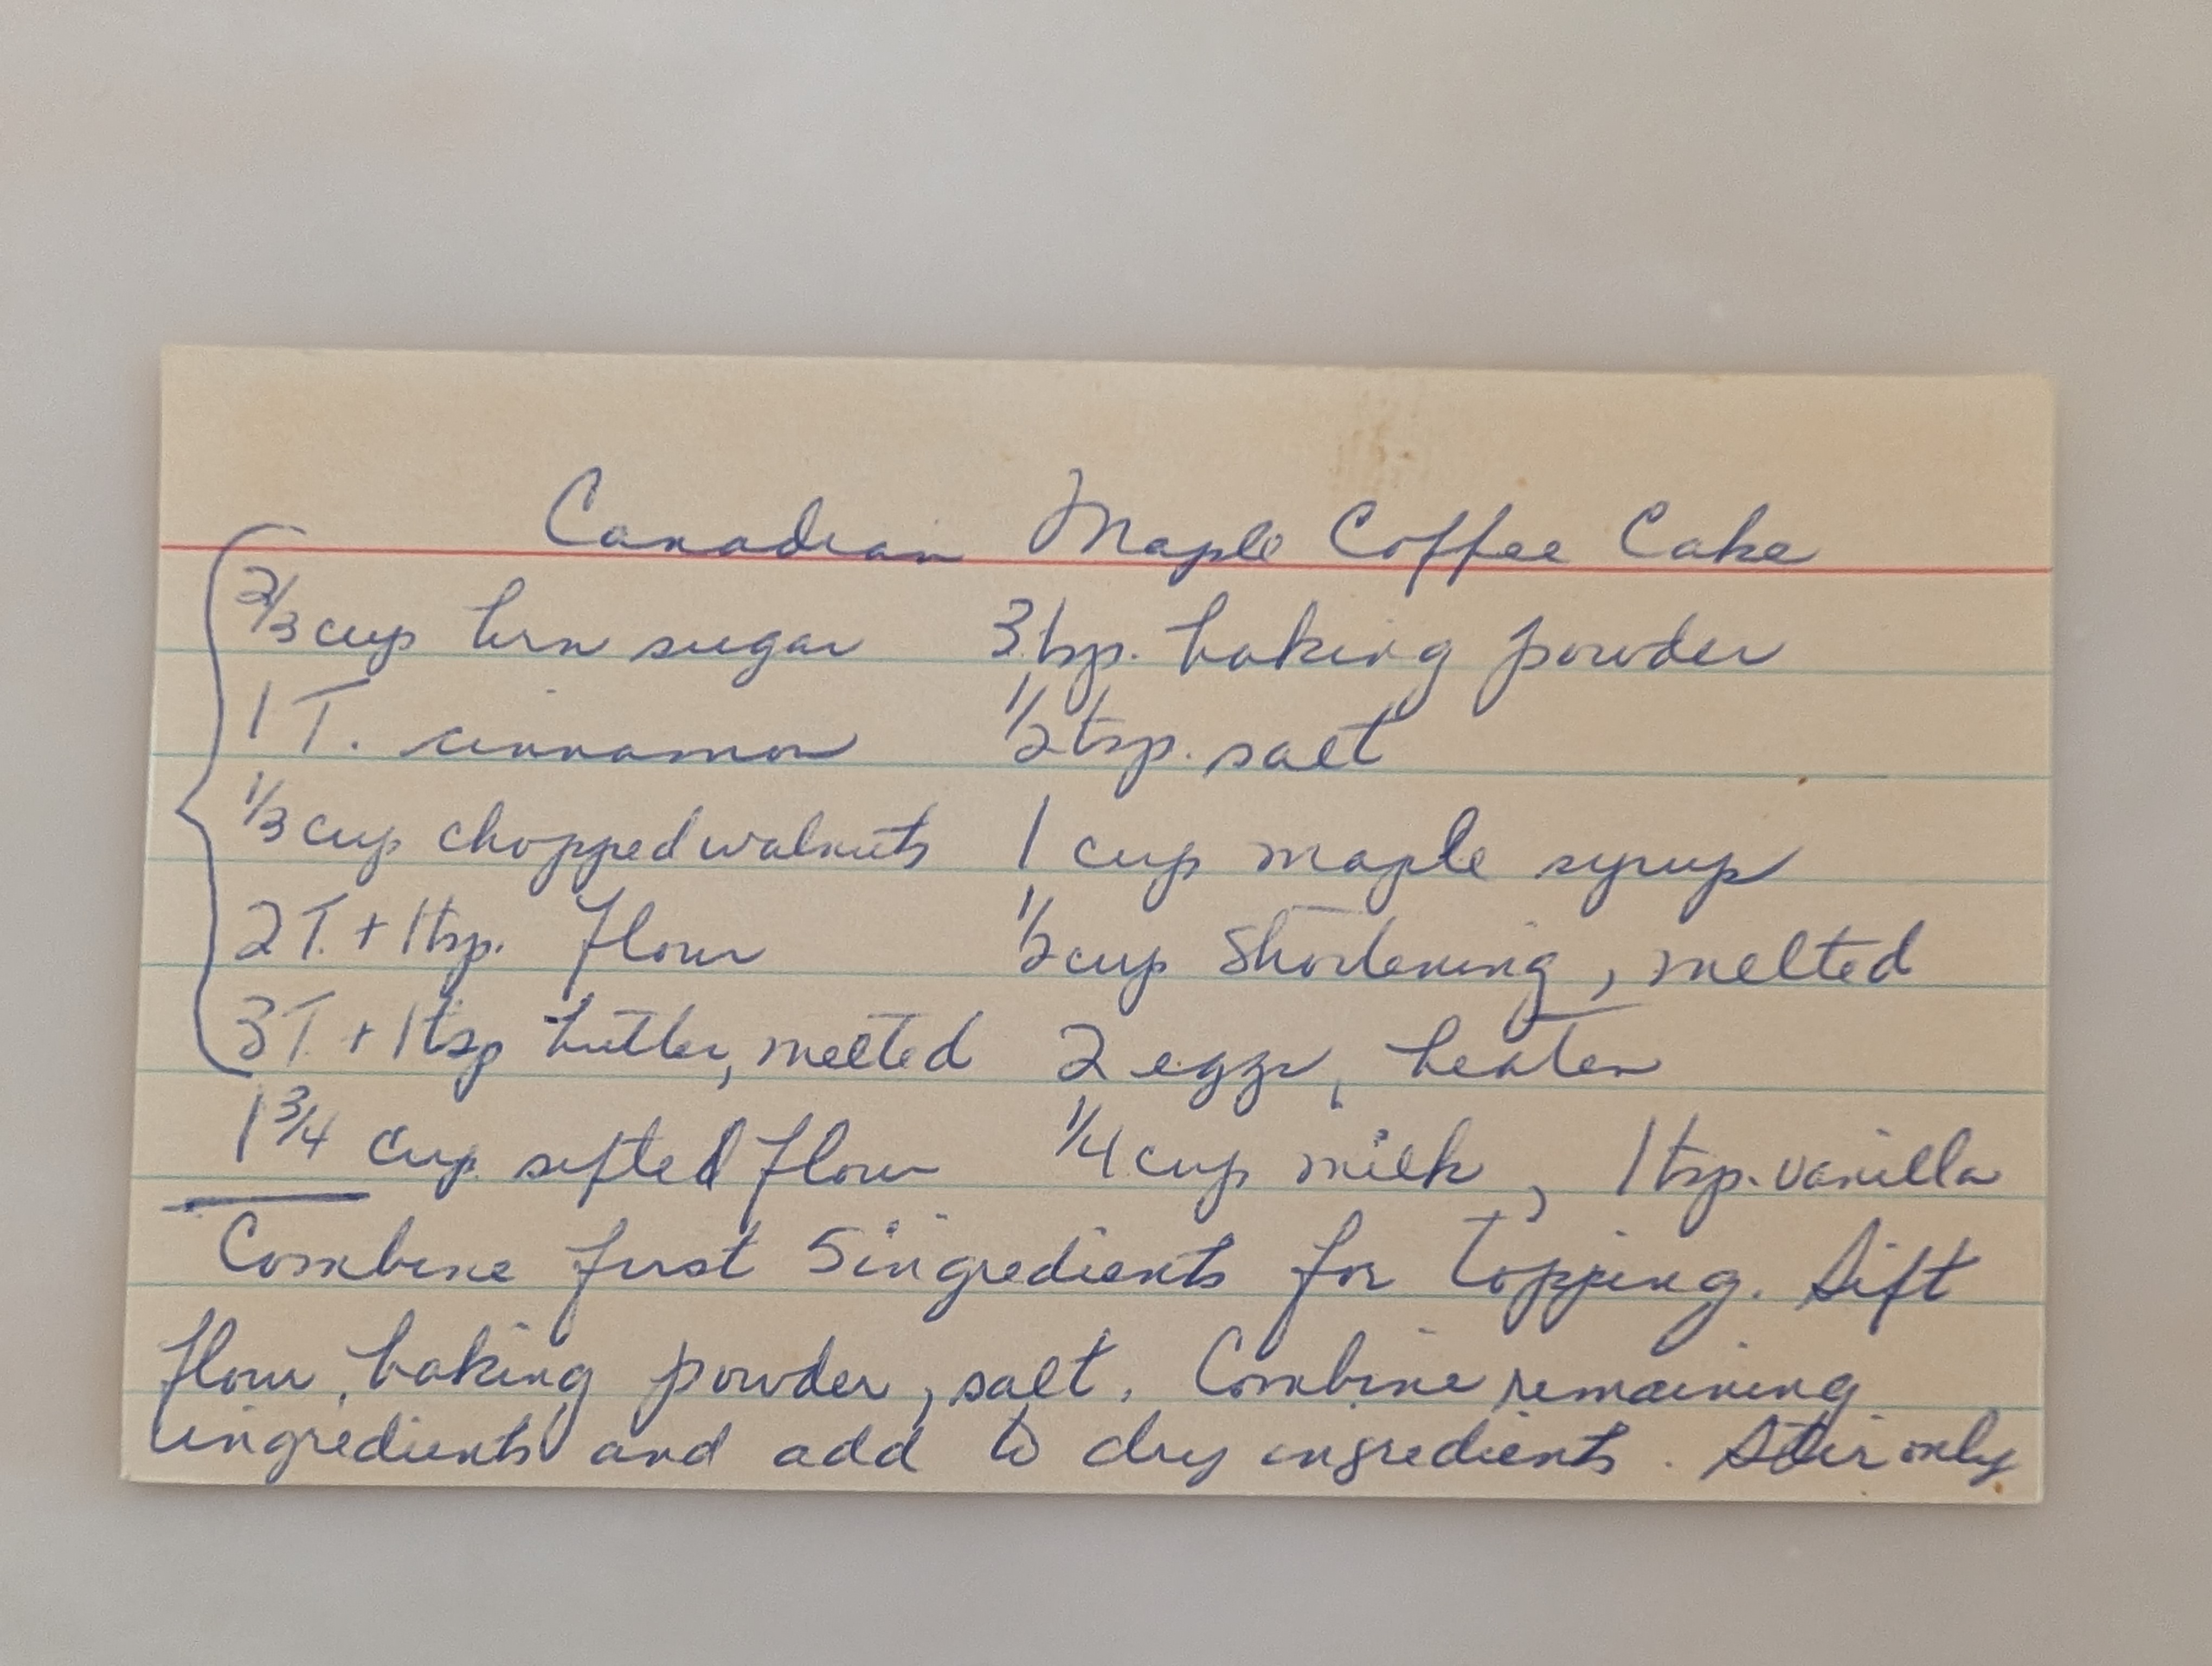 Canadian Maple Coffee Cake
2/3 cup brn sugar 3 tsp. baking powder
1 T. cinnamon 1/2 tsp. salt
1/3 cup chopped walnuts 1 cup maple syrup
2 T. + 1 tsp. flour 1/2 cup shortening, melted
3 T. + 1 tsp butter, melted 2 eggs, beaten
1 3/4 cup sifted flour 1/4 cup milk, 1 tsp. vanilla
Combine first 5 ingredients for topping. Sift
flour, baking powder, salt. Combine remaining
ingredients and add to dry ingredients. Stir only